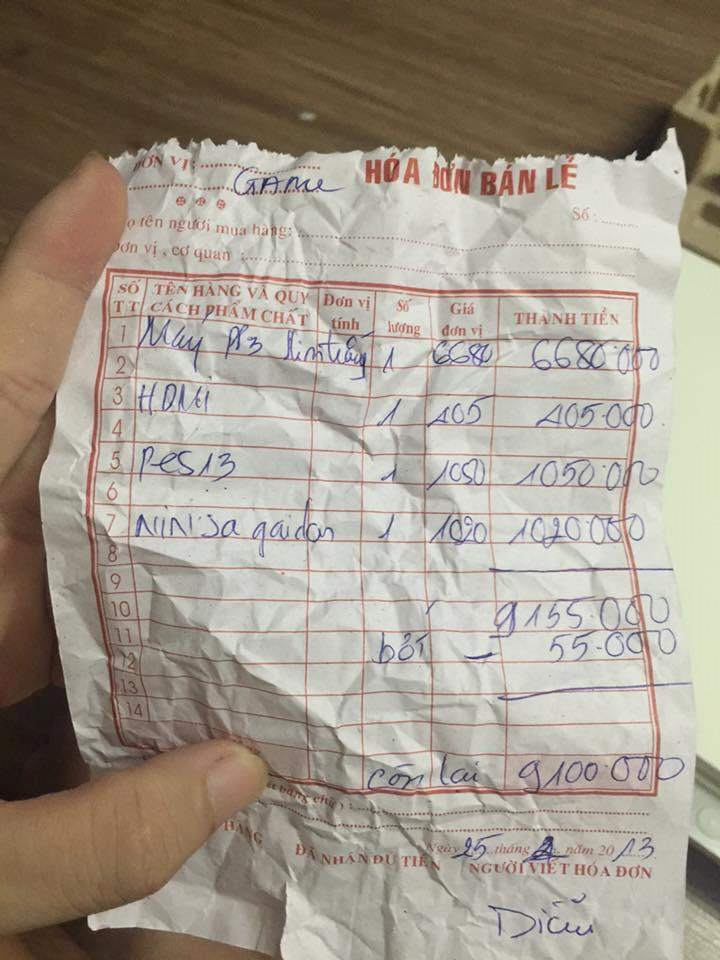 ĐƠN VỊ: GAME HÓA ĐƠN BÁN LẺ
Số:
ọ tên người mua hàng:
Đơn vị, cơ quan:
SỐ TT TÊN HÀNG VÀ QUY CÁCH PHẨM CHẤT Đơn vị tính Số lượng Giá đơn vị THÀNH TIỀN
1 Máy Ps3 slim trắng 1 6680 6680.000
2
3 HDMi 1 105 405.000
4
5 Pes13 1 1050 1050.000
6
7 NiNJa gaiden 1 1020 1020.000
8
9
10 9155.000
11 bớt — 55.000
12
13
14
còn lại 9100.000
bằng chữ):
Ngày 25 tháng 2 năm 2013
HÀNG ĐÃ NHẬN ĐỦ TIỀN NGƯỜI VIẾT HÓA ĐƠN